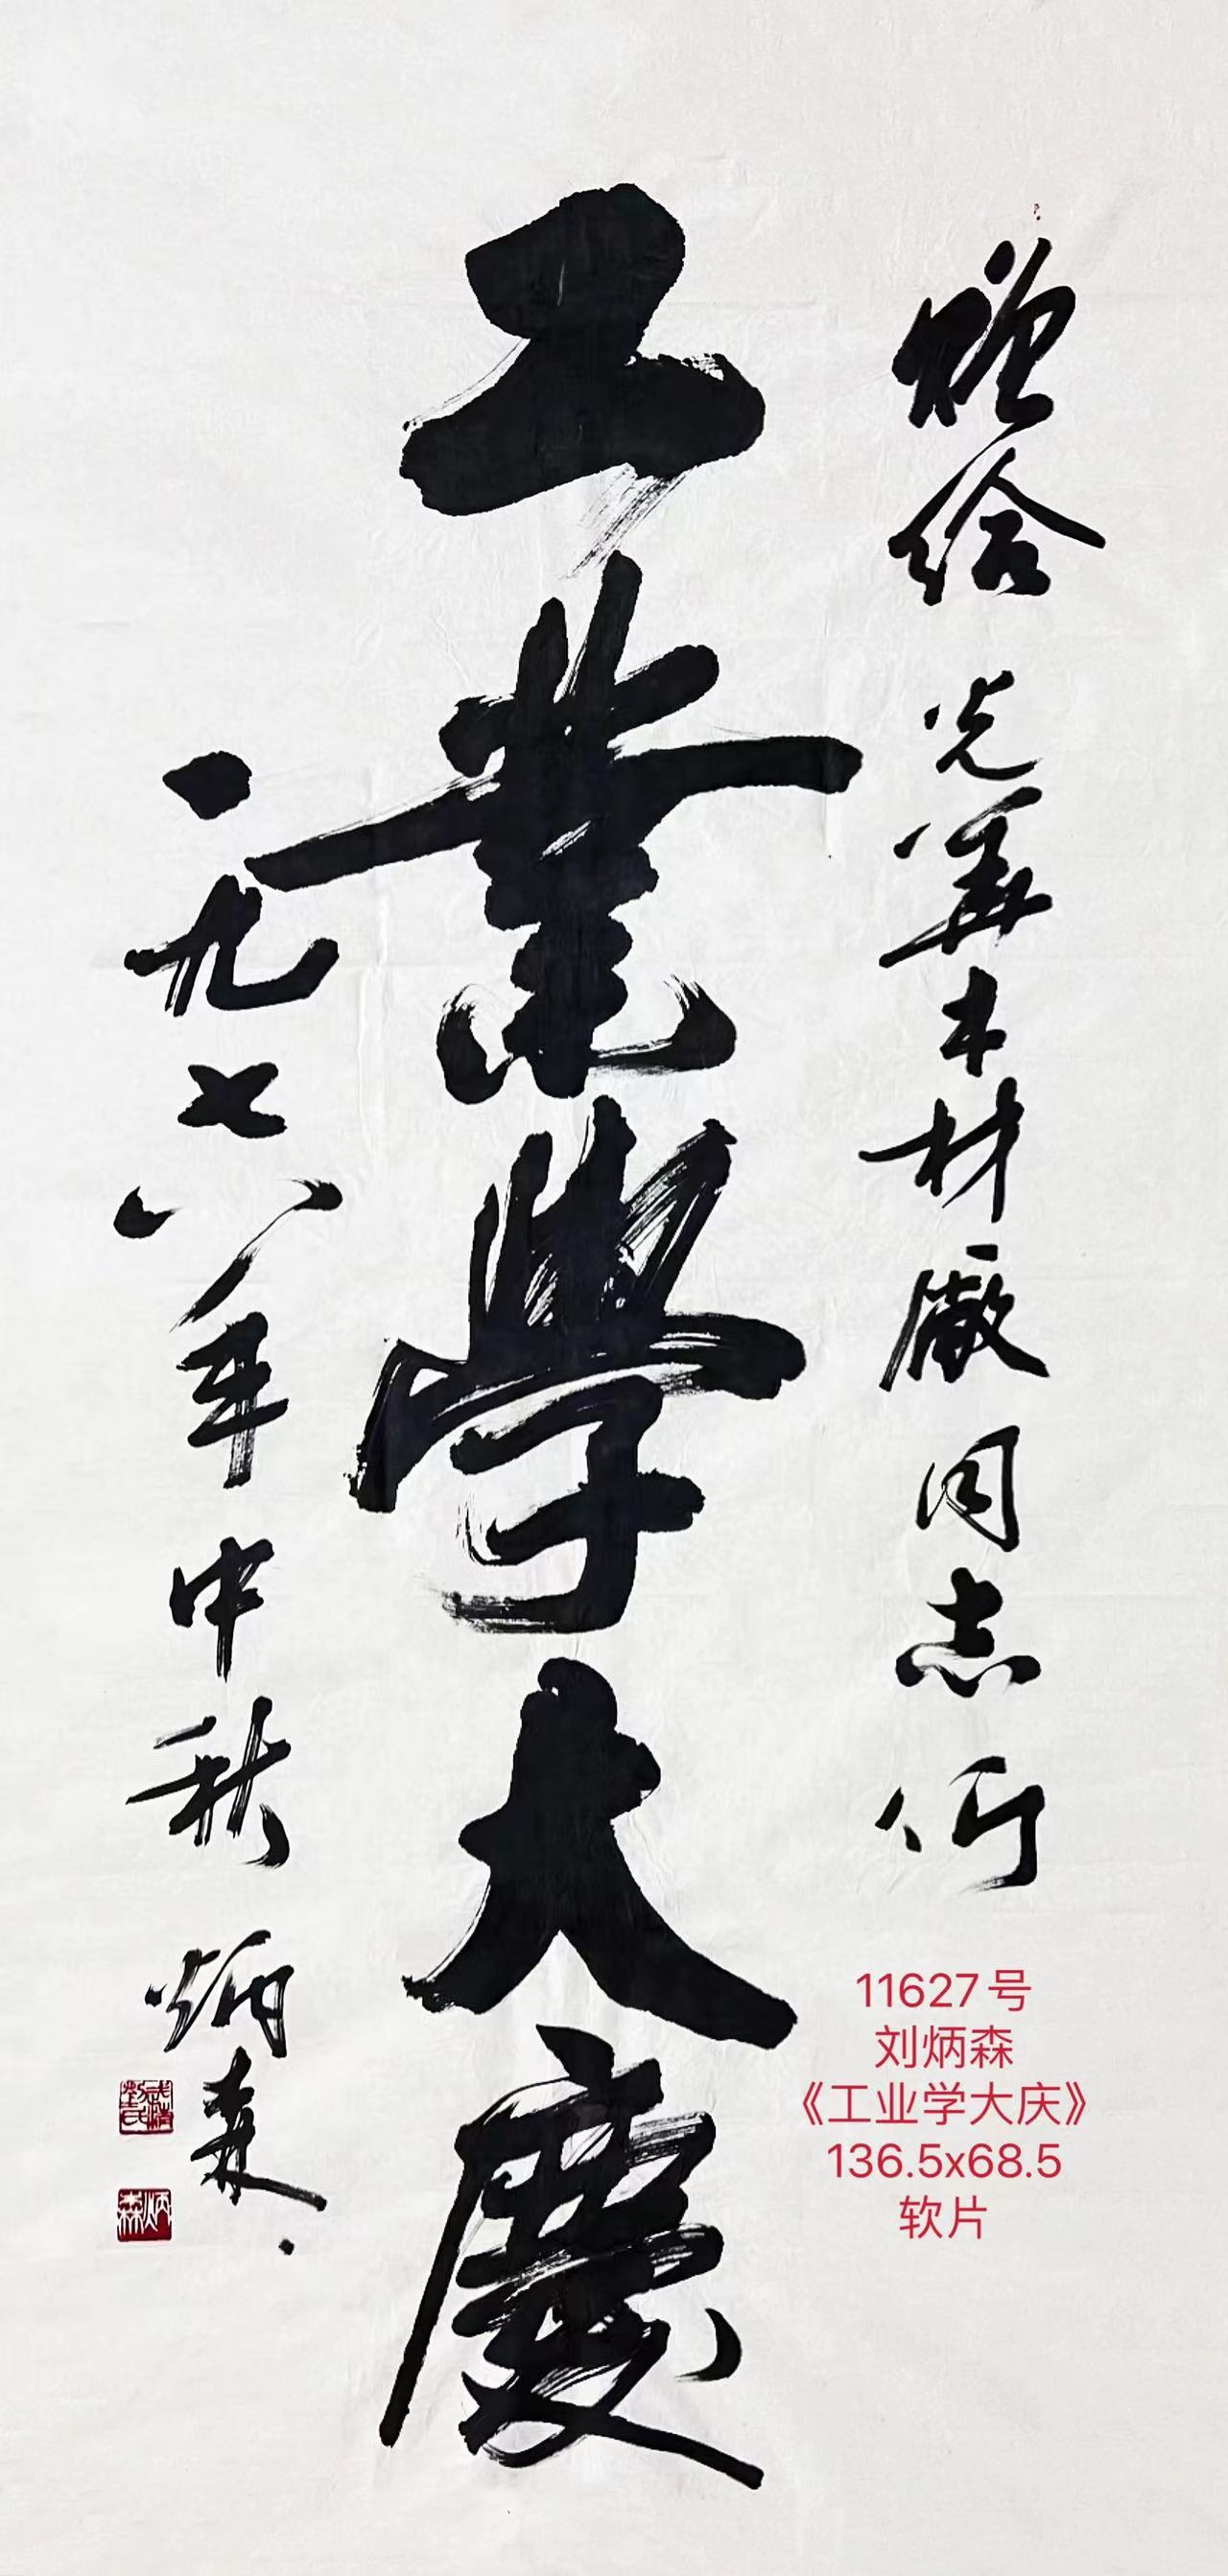 赠给 光華木材廠同志们
工業學大慶
一九七八年中秋 炳森
武清劉氏
炳森
11627号
刘炳森
《工业学大庆》
136.5x68.5
软片